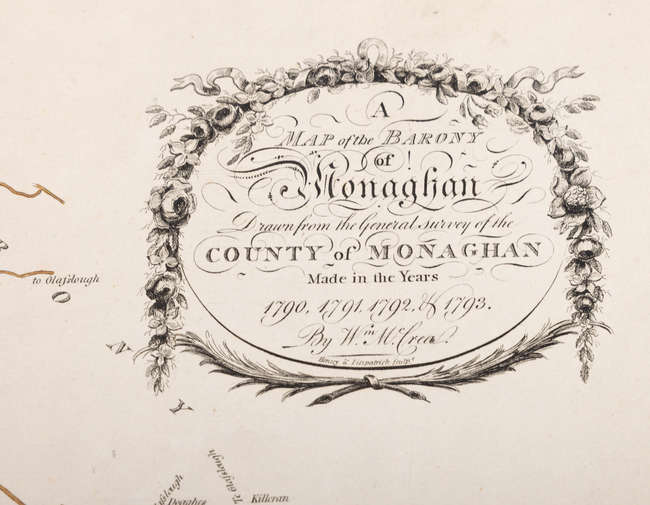 A
MAP of the BARONY
of
Monaghan
Drawn from the General Survey of the
COUNTY of MONAGHAN
Made in the Years
1790, 1791, 1792, & 1793.
By Wm. McCrea.
Henecy & Fitzpatrick Sculpt.
to Glaslough
N
Y
To Glaslough
Killeran